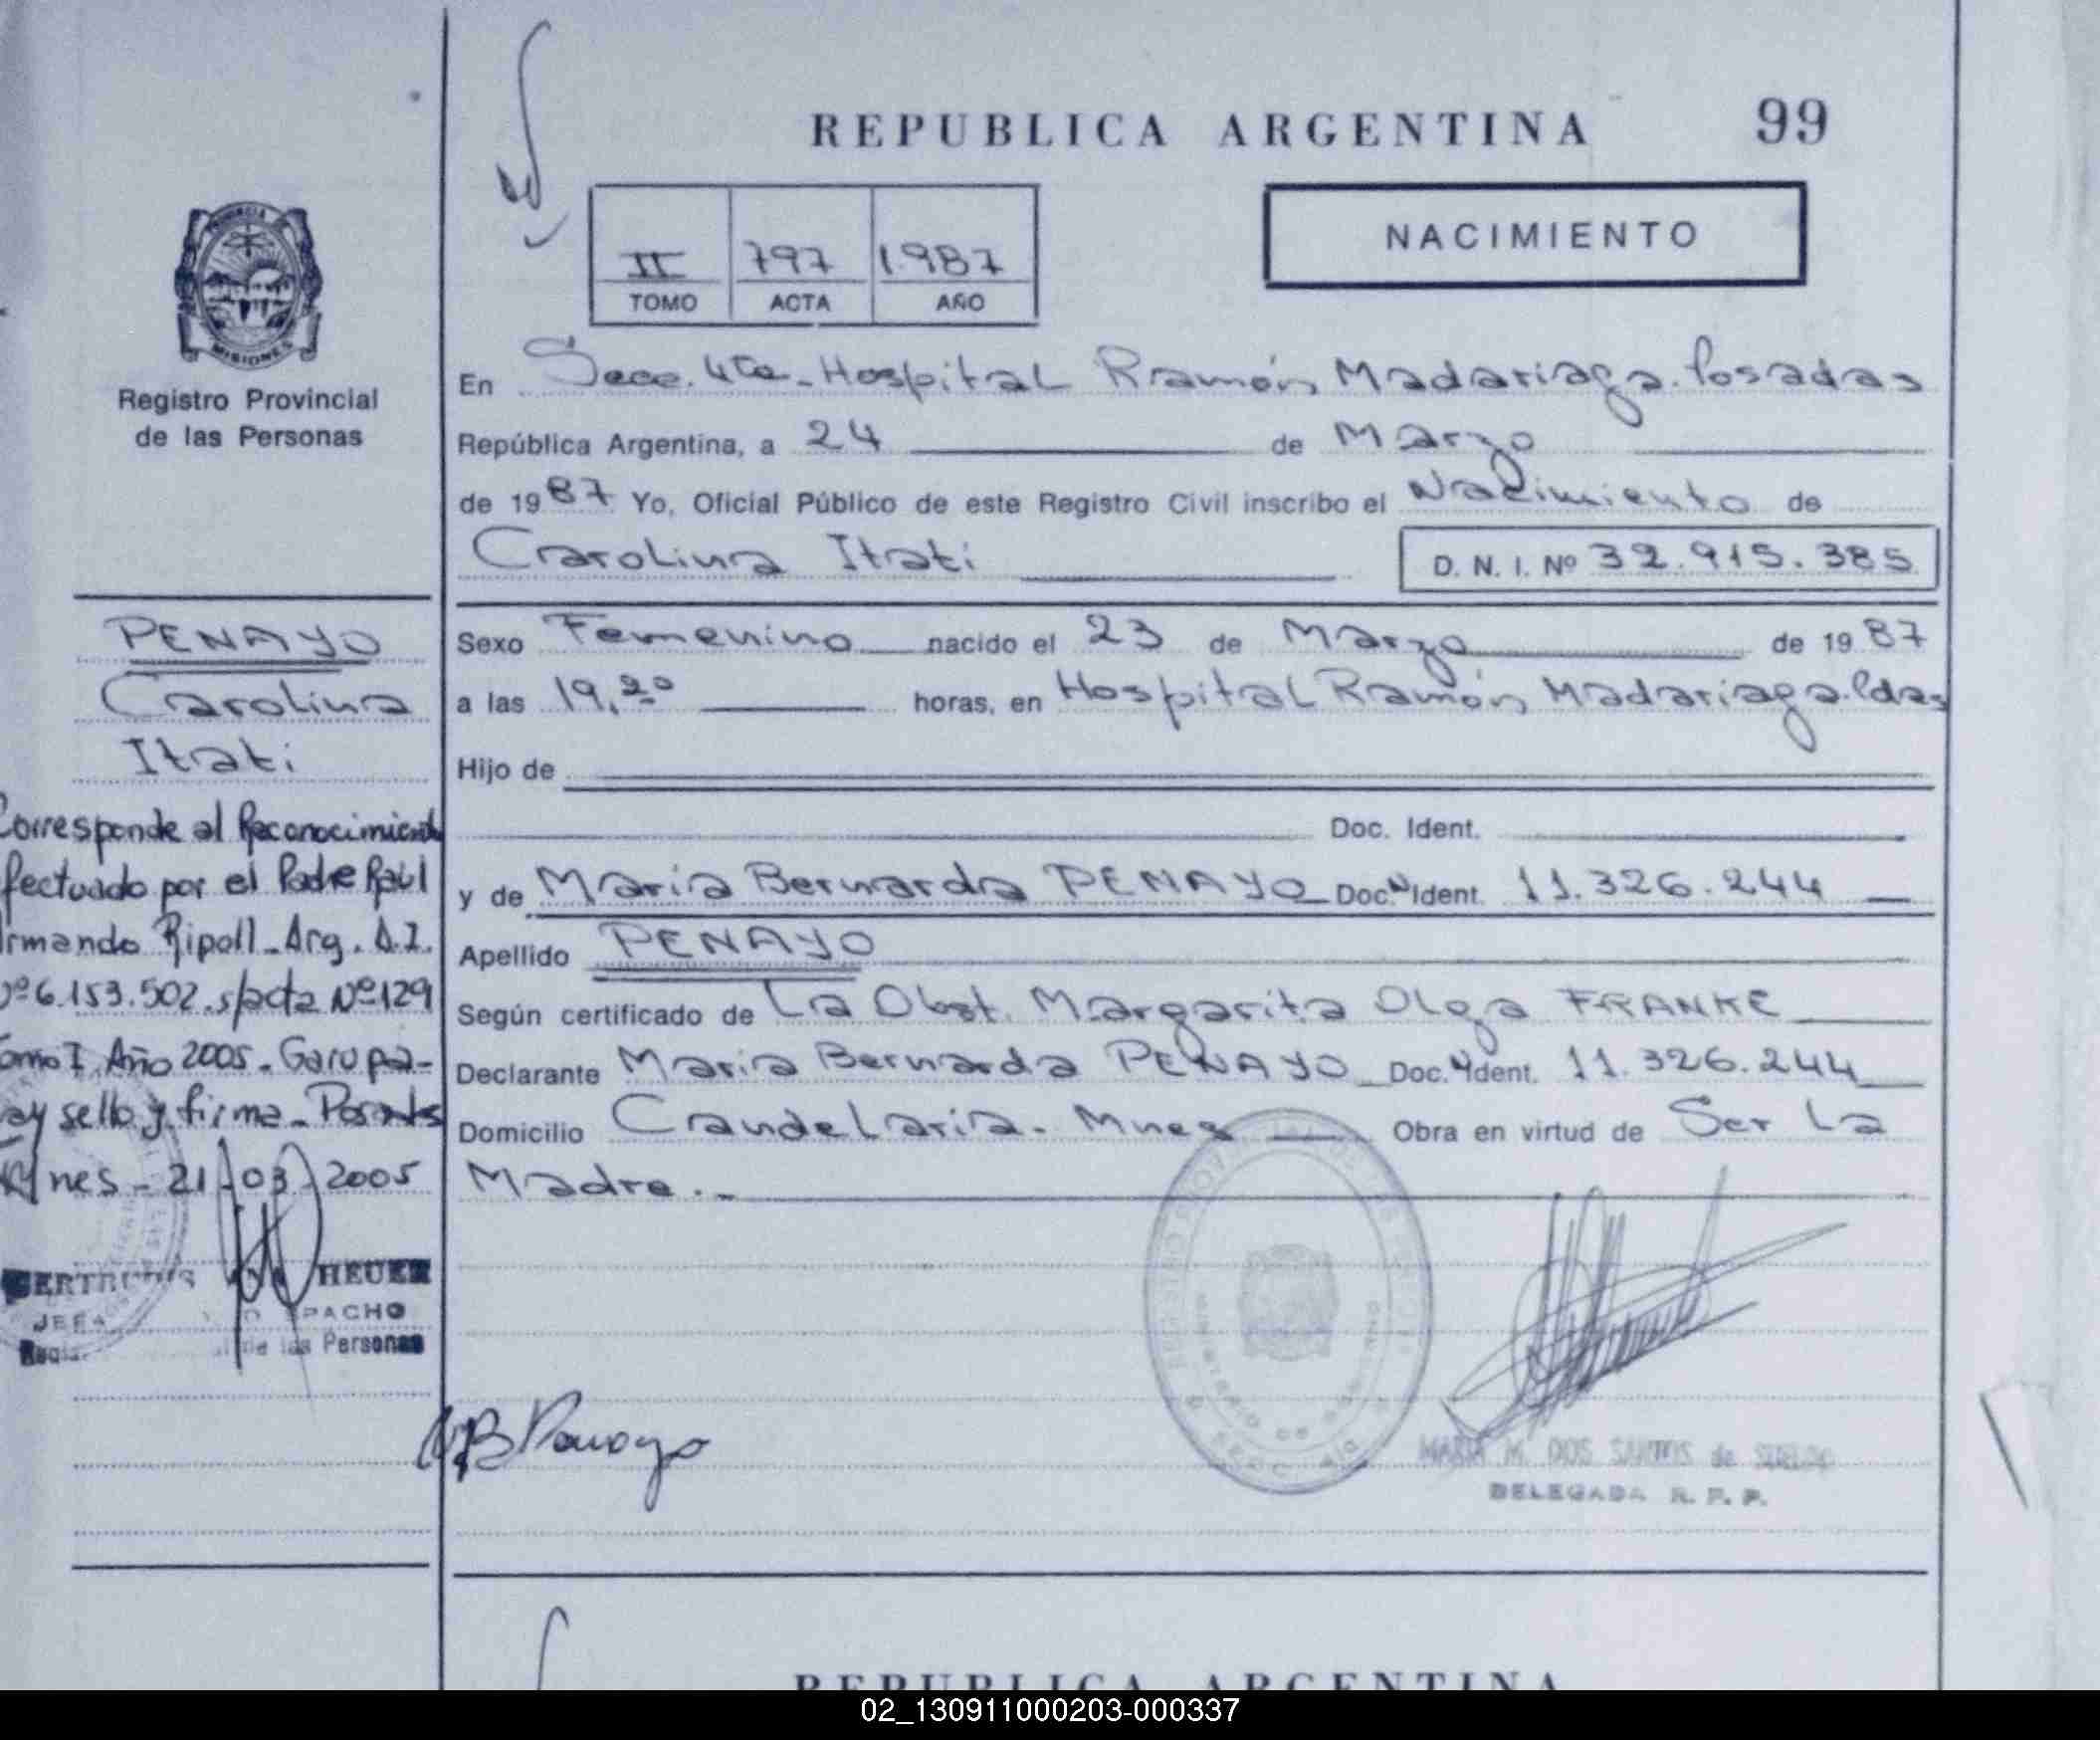 REPUBLICA ARGENTINA 99
NACIMIENTO
II 797 1.987
TOMO ACTA AÑO
PROVINCIA
MISIONES
Registro Provincial
de las Personas
PENAYO
Carolina
Itati
Corresponde al Reconocimiento
efectuado por el Padre Raúl
Armando Ripoll - Arg. D.I.
Nº 6.153.502. s/acta Nº 129
Tomo I. Año 2005 - Garupá -
Hay sello y firma - Posadas
Mnes - 21-03-2005
HEUER
JEFA PACHO
de las Personas
En Secc. 4ta - Hospital Ramón Madariaga. Posadas
República Argentina, a 24 de Marzo
de 1987 Yo, Oficial Público de este Registro Civil inscribo el Nacimiento de
Carolina Itati D. N. I. Nº 32.915.385
Sexo Femenino nacido el 23 de Marzo de 1987
a las 19,20 horas, en Hospital Ramón Madariaga. Pdas
Hijo de
Doc. Ident.
y de Maria Bernarda PENAYO Doc. Ident. 11.326.244
Apellido PENAYO
Según certificado de La Obst. Margarita Olga FRANKE
Declarante Maria Bernarda PENAYO Doc. Ident. 11.326.244
Domicilio Candelaria - Mnes Obra en virtud de Ser La
Madre. -
MB Penayo
MARIA M. DOS SANTOS de
DELEGADA R. P. P.
REPUBLICA ARGENTINA
02_130911000203-000337